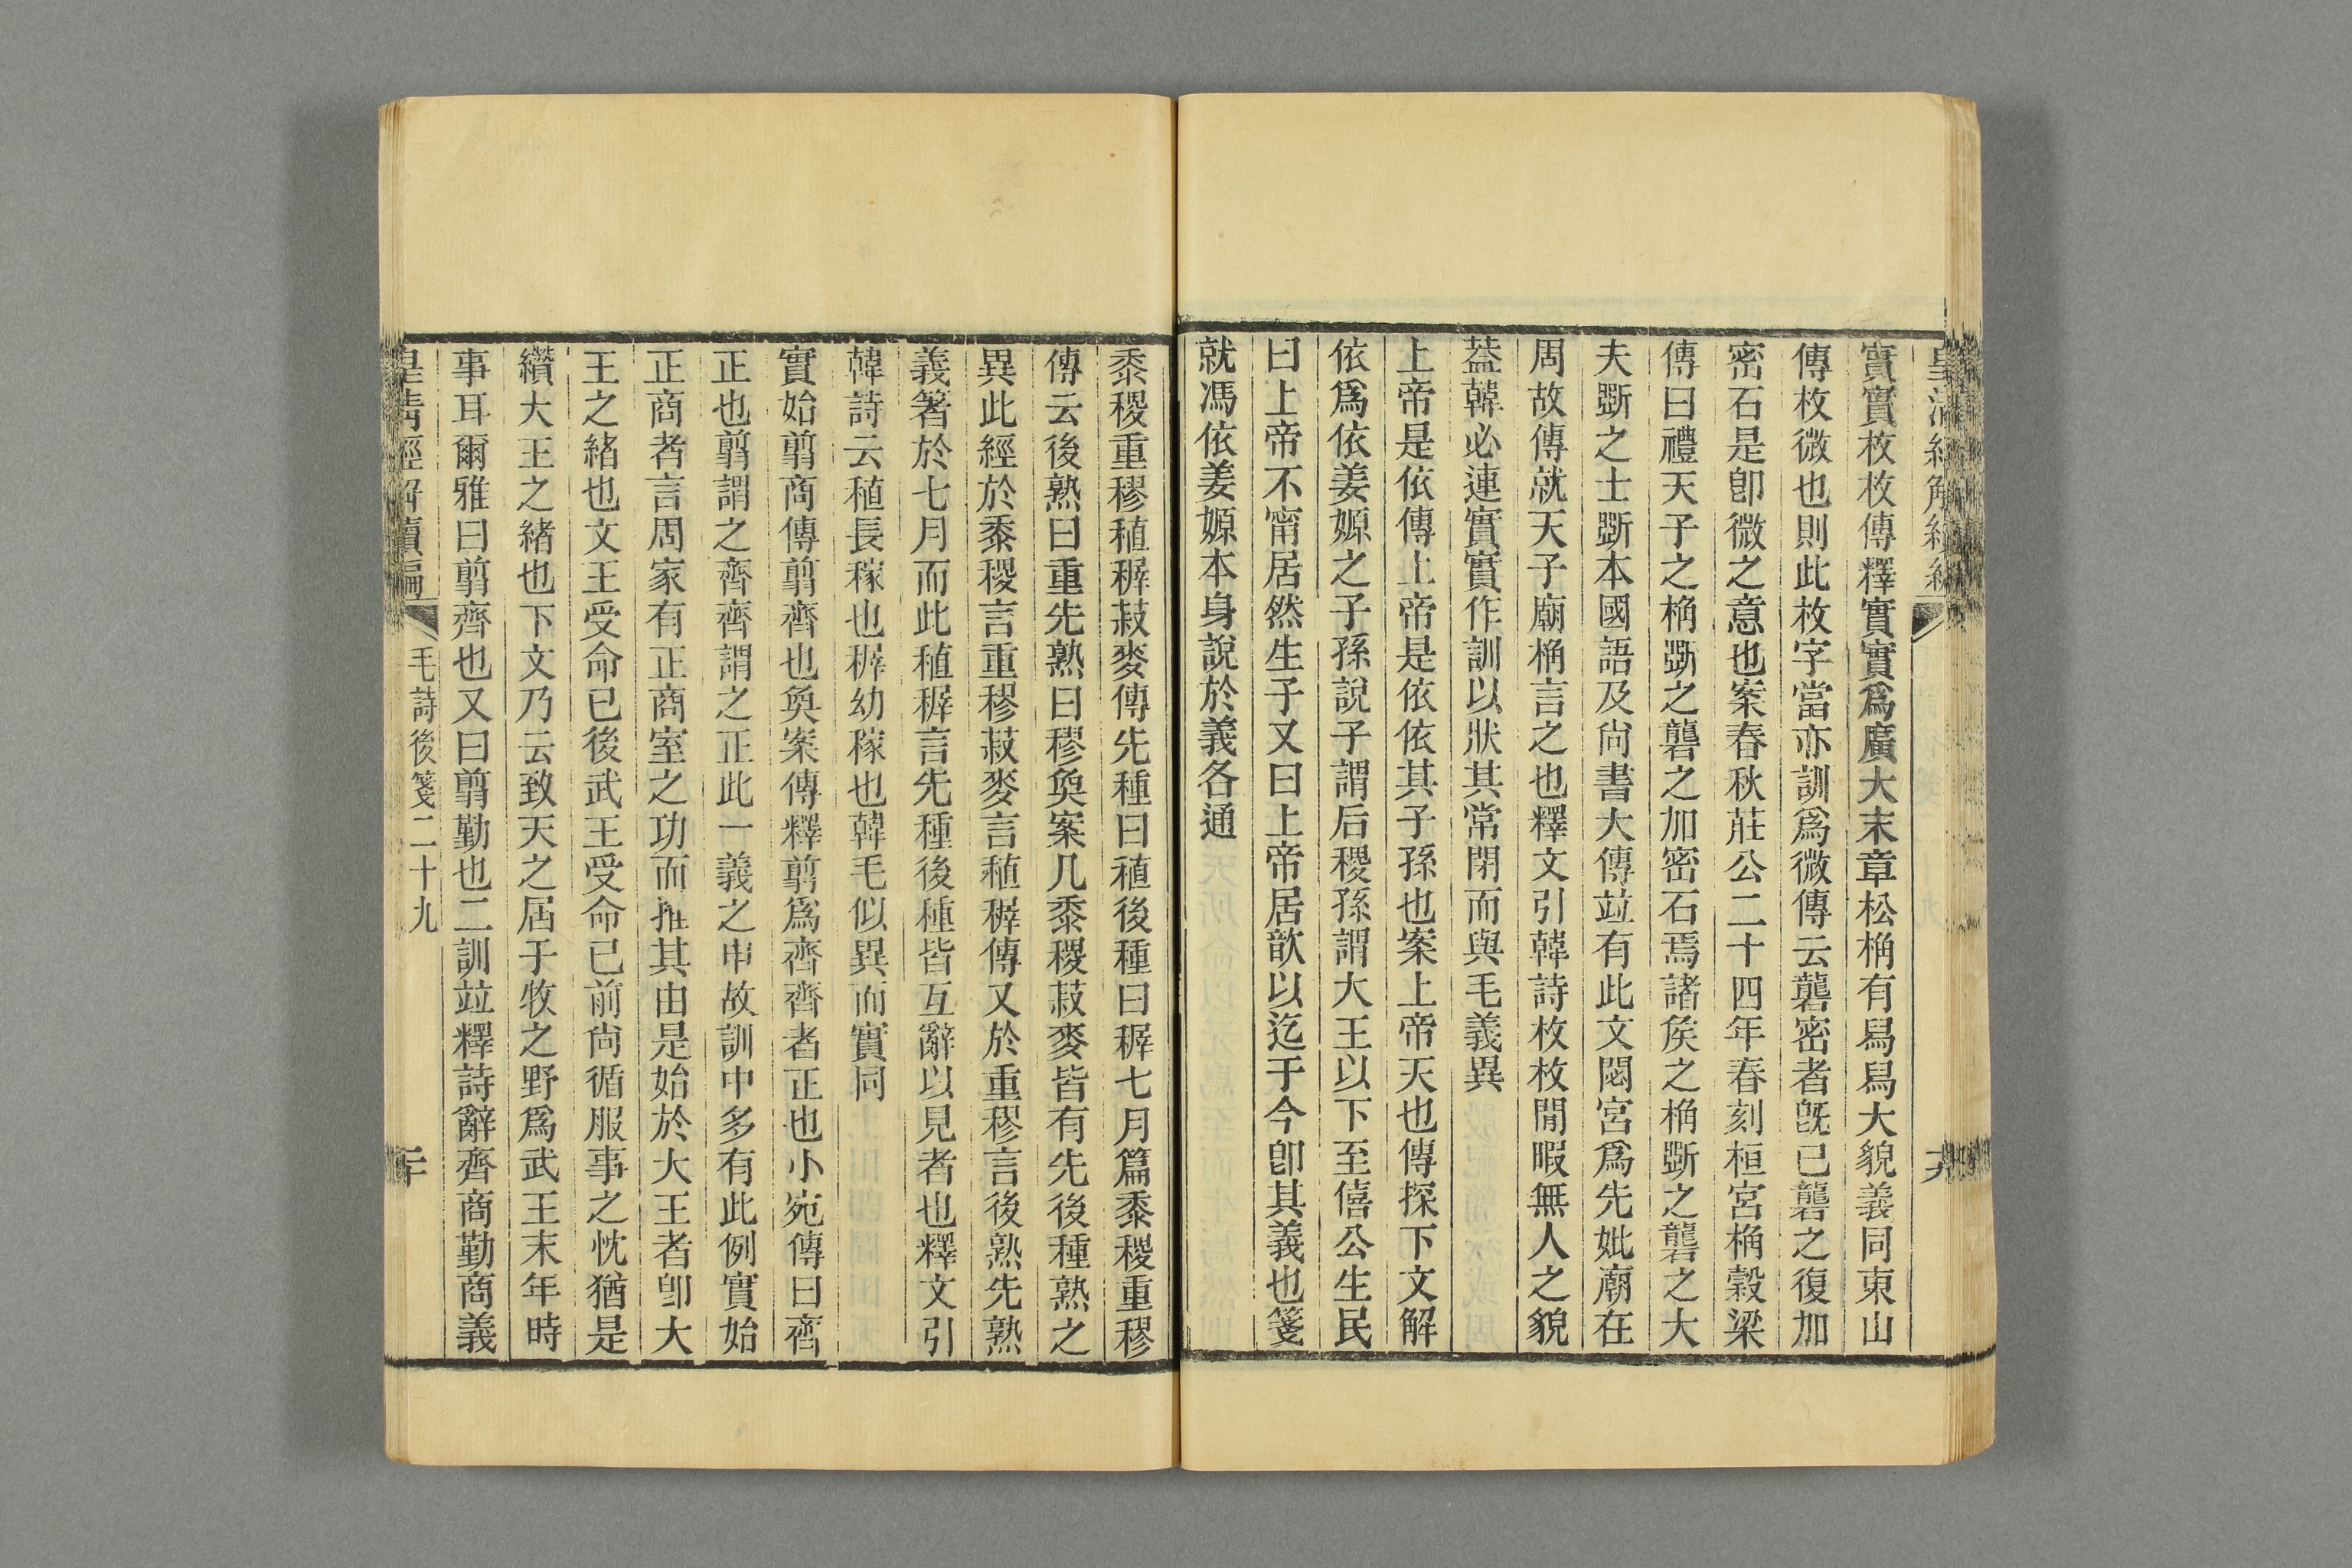 實實枚枚傳釋實實爲廣大末章松桷有舄舄大貌義同東山
傳枚微也則此枚字當亦訓爲微傳云礱密者旣已礱之復加
密石是卽微之意也案春秋莊公二十四年春刻桓宮桷穀梁
傳曰禮天子之桷斲之礱之加密石焉諸矦之桷斲之礱之大
夫斲之士斲本國語及尙書大傳竝有此文閟宮爲先妣廟在
周故傳就天子廟桷言之也釋文引韓詩枚枚閒暇無人之貌
葢韓必連實實作訓以狀其常閉而與毛義異
上帝是依傳上帝是依依其子孫也案上帝天也傳探下文解
依爲依姜嫄之子孫說子謂后稷孫謂大王以下至僖公生民
曰上帝不甯居然生子又曰上帝居歆以迄于今卽其義也箋
就馮依姜嫄本身說於義各通
黍稷重穋稙稺菽麥傳先種曰稙後種曰稺七月篇黍稷重穋
傳云後熟曰重先熟曰穋奐案凡黍稷菽麥皆有先後種熟之
異此經於黍稷言重穋菽麥言稙稺傳又於重穋言後熟先熟
義箸於七月而此稙稺言先種後種皆互辭以見者也釋文引
韓詩云稙長稼也稺幼稼也韓毛似異而實同
實始翦商傳翦齊也奐案傳釋翦爲齊齊者正也小宛傳曰齊
正也翦謂之齊齊謂之正此一義之申故訓中多有此例實始
正商者言周家有正商室之功而推其由是始於大王者卽大
王之緒也文王受命已後武王受命已前尙循服事之忱猶是
纘大王之緒也下文乃云致天之屆于牧之野爲武王末年時
事耳爾雅曰翦齊也又曰翦勤也二訓竝釋詩辭齊商勤商義
皇淸經解續編 毛詩後箋二十九 二十